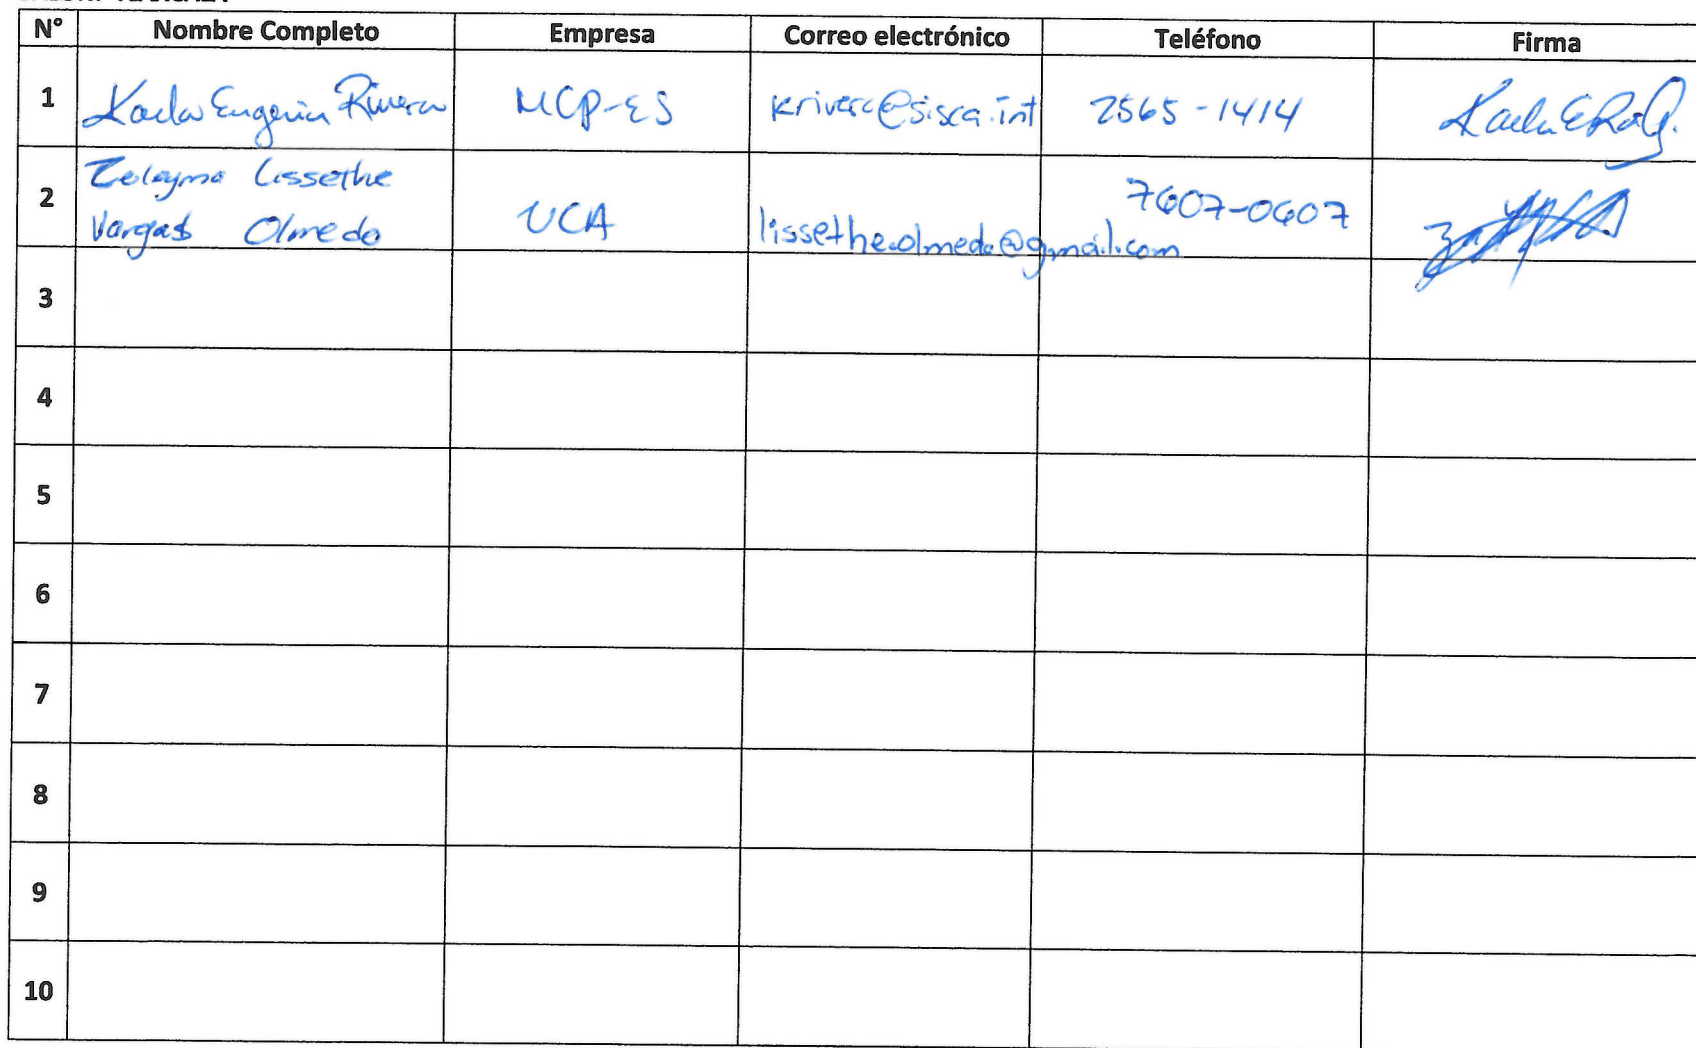 N° Nombre Completo Empresa Correo electrónico Teléfono Firma
1 Karla Eugenia Rivera MCP-ES krivera@sisca.int 2565-1414
2 Zuleyma Lissethe
Vargas Olmedo UCA lissethe.olmedo@gmail.com 7607-0607
3
4
5
6
7
8
9
10